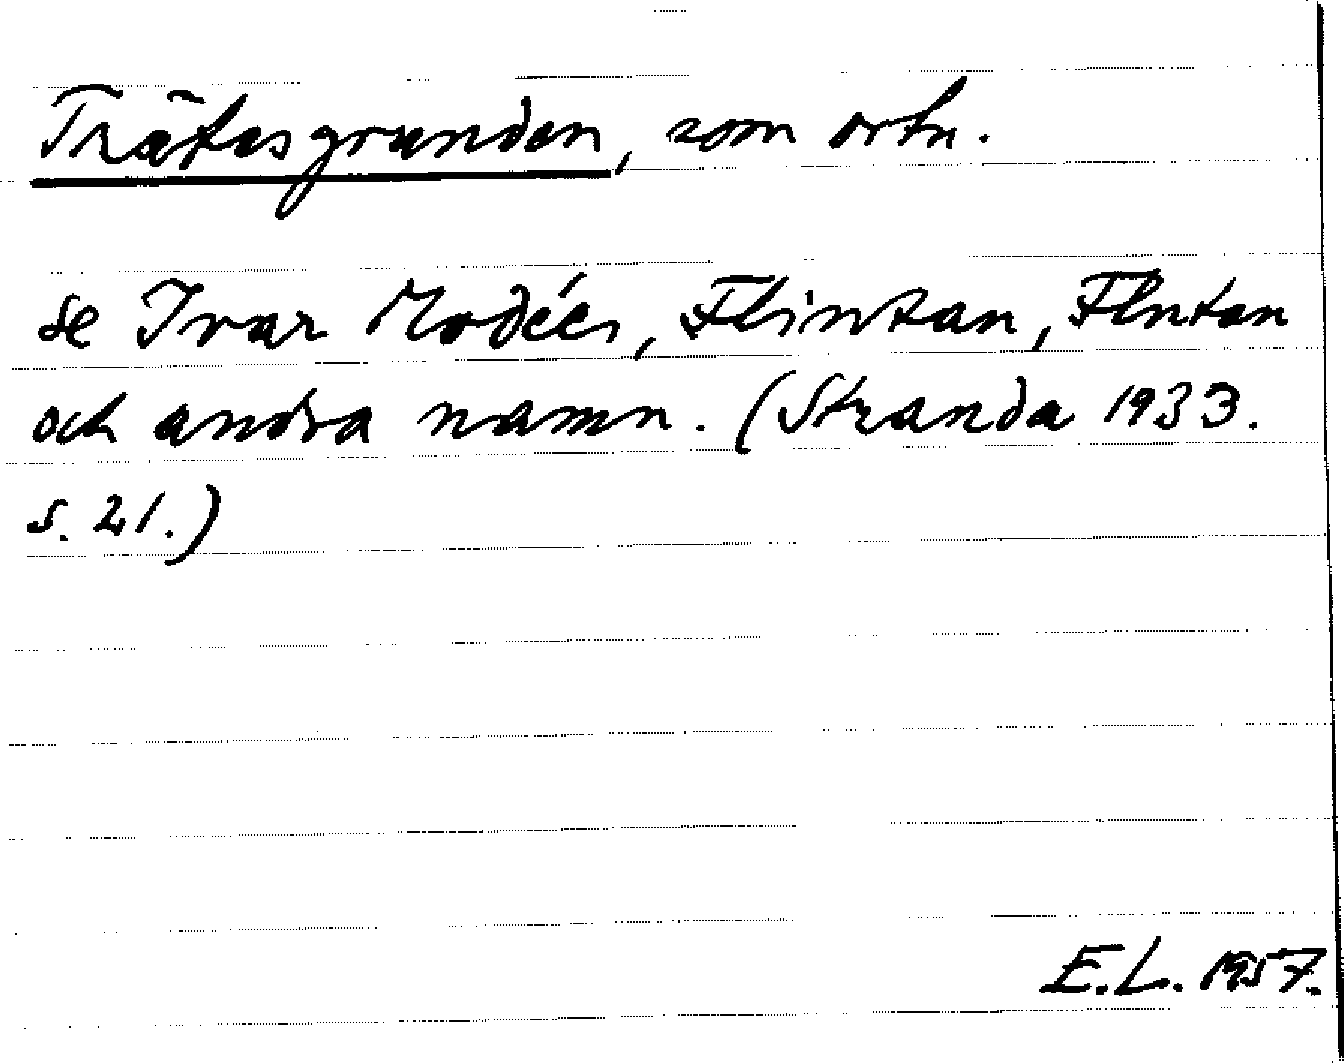 Trätesgrunden, som ortn.
se Ivar Modéer, Flintan, Flntan
och andra namn. (Stranda 1933.
s. 21.)
E.L. 1957.